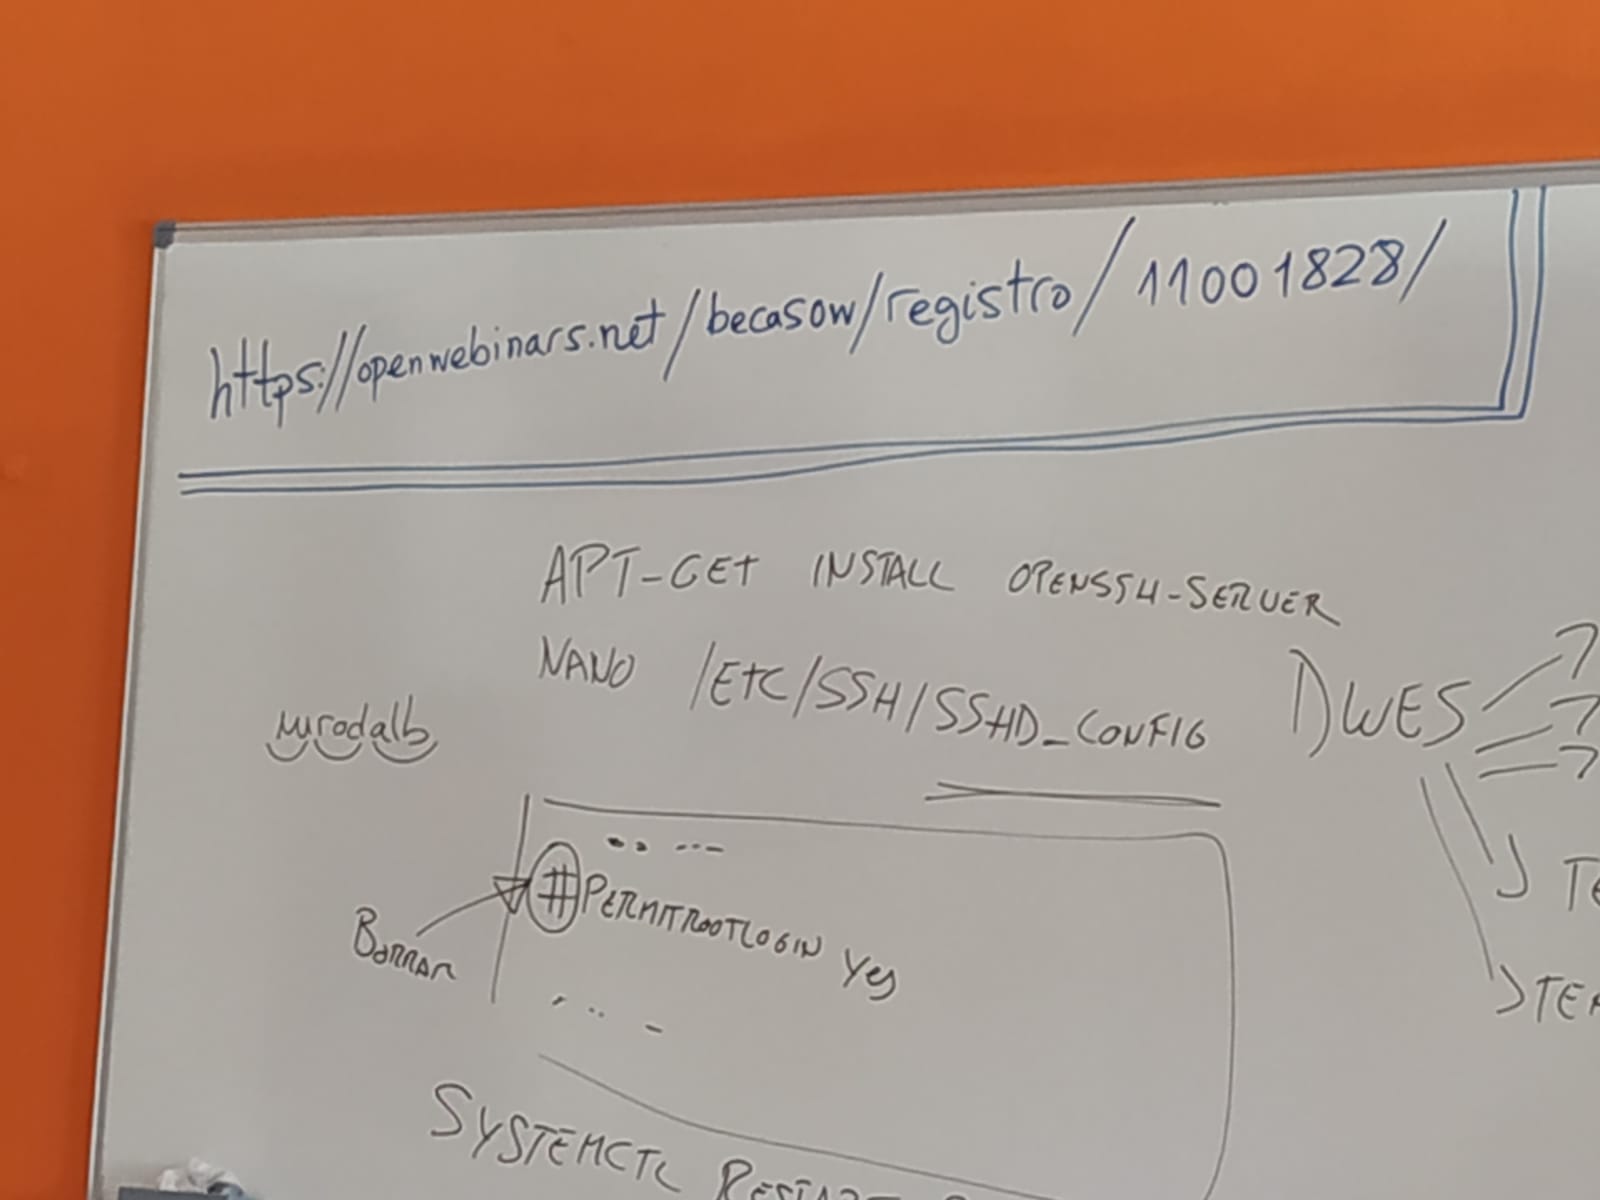 https://openwebinars.net/becasow/registro/11001828/
APT-GET INSTALL OPENSSH-SERVER
NANO /ETC/SSH/SSHD_CONFIG
DWES
murodalb
#PERMITROOTLOGIN Yes
BORRAR
SYSTEMCTL